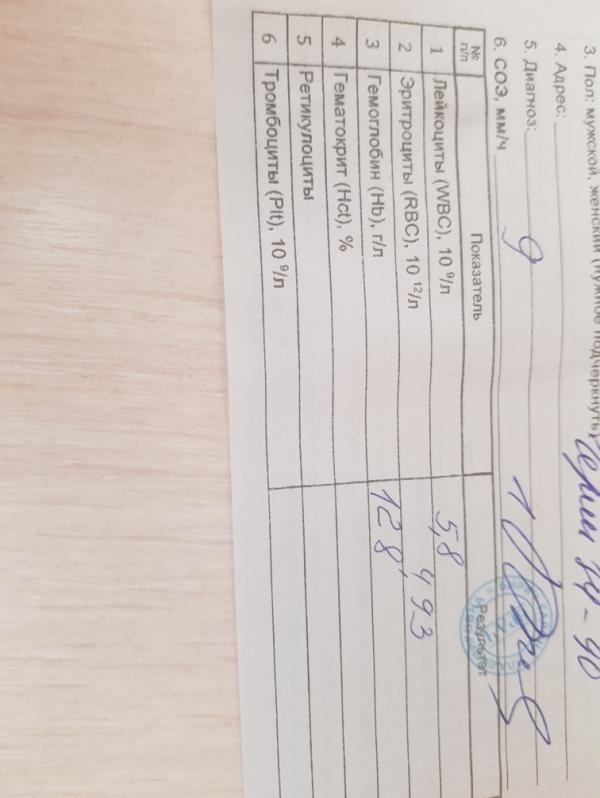 3. Пол: мужской, женский (нужное подчеркнуть)
4. Адрес:
5. Диагноз:
6. СОЭ, мм/ч 9
№ п/п Показатель Результат
1 Лейкоциты (WBC), 10 ⁹/л 5,8
2 Эритроциты (RBC), 10 ¹²/л 4 93
3 Гемоглобин (Hb), г/л 128
4 Гематокрит (Hct), %
5 Ретикулоциты
6 Тромбоциты (Plt), 10 ⁹/л